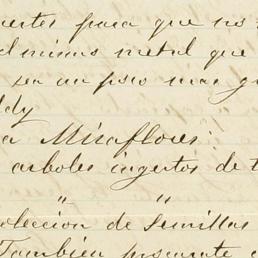 uertes para que no
el mismo metal que
sea un poco mas g
ddy
a Miraflores.
arboles ingertos de t
" "
oleccion de Semillas
Tambien presente